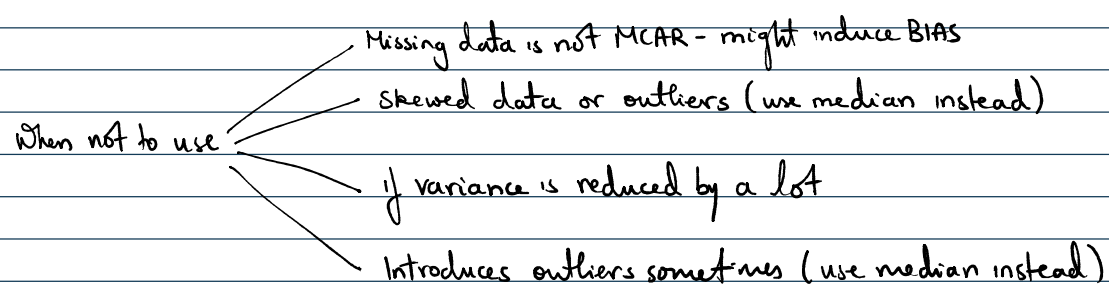 Missing data is not MCAR - might induce BIAS
Skewed data or outliers (use median instead)
When not to use
if variance is reduced by a lot
Introduces outliers sometimes (use median instead)